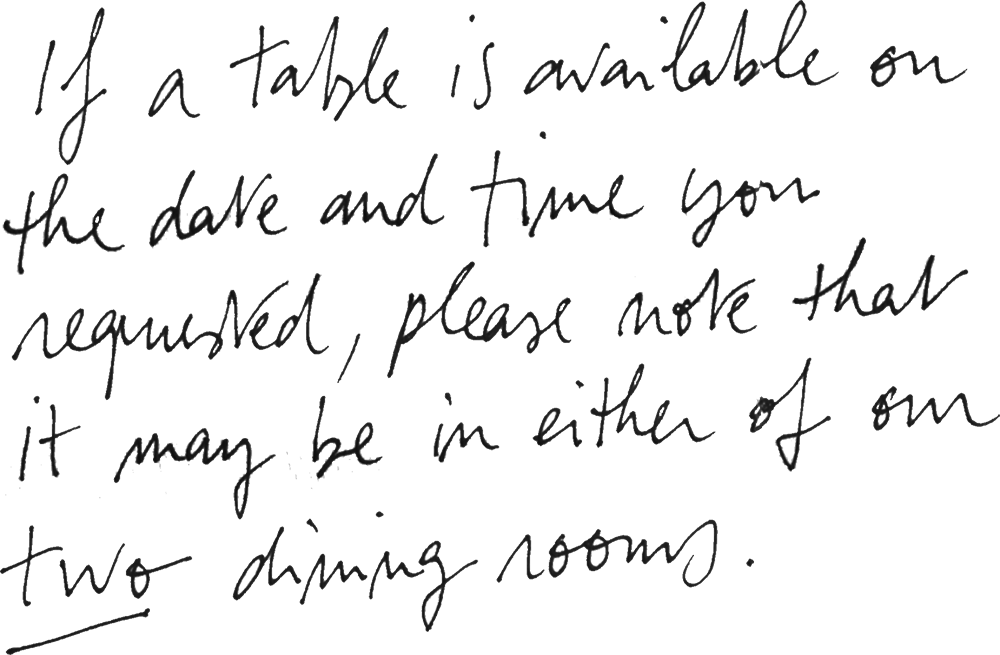 If a table is available on
the date and time you
requested, please note that
it may be in either of our
two dining rooms.